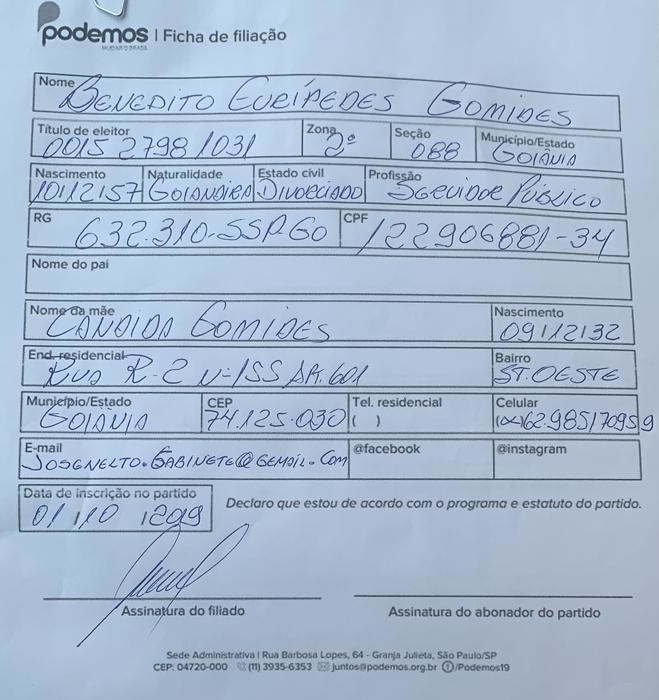 podemos | Ficha de filiação
MUDAR O BRASIL
Nome BENEDITO EURÍPEDES GOMIDES
Título de eleitor Zona Seção Município/Estado
0015 2798 1031 2º 088 GOIÂNIA
Nascimento Naturalidade Estado civil Profissão
10/12/57 GOIANDIRA DIVORCIADO SERVIDOR PÚBLICO
RG 632.310-SSP.GO CPF 122906881-34
Nome do pai
Nome da mãe Nascimento
CANDIDA GOMIDES 09/12/32
End. residencial Bairro
RUA R-2 Nº 155 AP. 601 ST. OESTE
Município/Estado CEP Tel. residencial Celular
GOIÂNIA 74.125-030 ( ) 62.985170959
E-mail @facebook @instagram
JOSENELTO.GABINETE@GEMAIL.COM
Data de inscrição no partido Declaro que estou de acordo com o programa e estatuto do partido.
01/10
Assinatura do filiado Assinatura do abonador do partido
Sede Administrativa | Rua Barbosa Lopes, 64 - Granja Julieta, São Paulo/SP
CEP: 04720-000 (11) 3935-6353 juntos@podemos.org.br /Podemos19